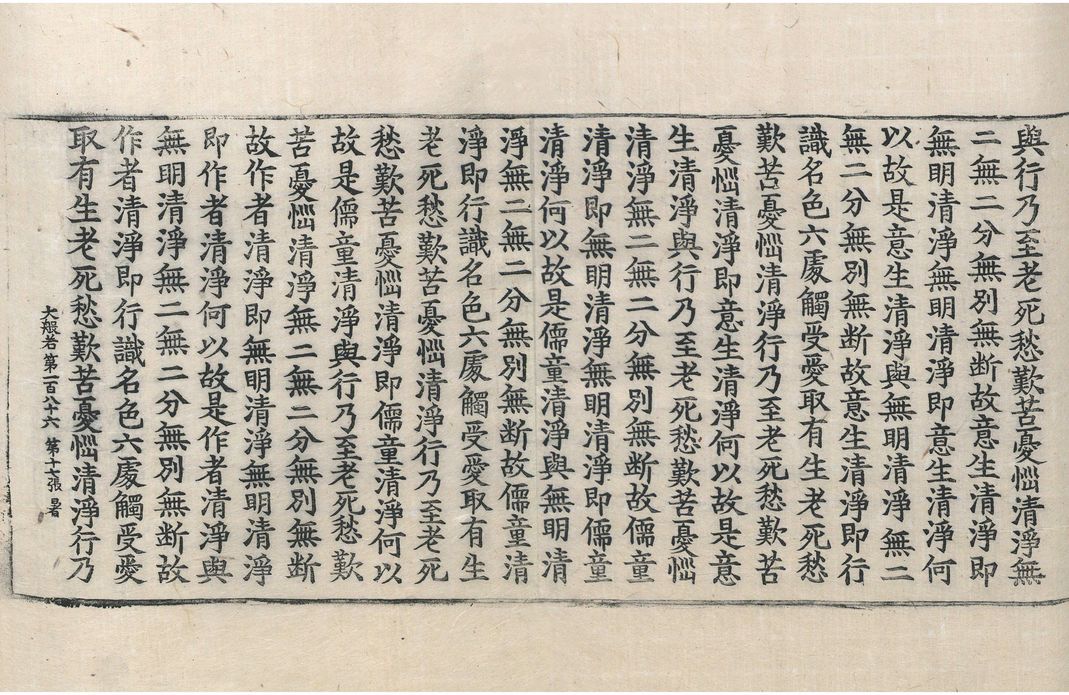 與行乃至老死愁歎苦憂惱清淨無
二無二分無別無断故意生清淨即
無明清淨無明清淨即意生清淨何
以故是意生清淨與無明清淨無二
無二分無別無断故意生清淨即行
識名色六處觸受愛取有生老死愁
歎苦憂惱清淨行乃至老死愁歎苦
憂惱清淨即意生清淨何以故是意
生清淨與行乃至老死愁歎苦憂惱
清淨無二無二分無別無断故儒童
清淨即無明清淨無明清淨即儒童
清淨何以故是儒童清淨與無明清
淨無二無二分無別無断故儒童清
淨即行識名色六處觸受愛取有生
老死愁歎苦憂惱清淨行乃至老死
愁歎苦憂惱清淨即儒童清淨何以
故是儒童清淨與行乃至老死愁歎
苦憂惱清淨無二無二分無別無断
故作者清淨即無明清淨無明清淨
即作者清淨何以故是作者清淨與
無明清淨無二無二分無別無断故
作者清淨即行識名色六處觸受愛
取有生老死愁歎苦憂惱清淨行乃
大般若第一百八十六 第十七張 暑